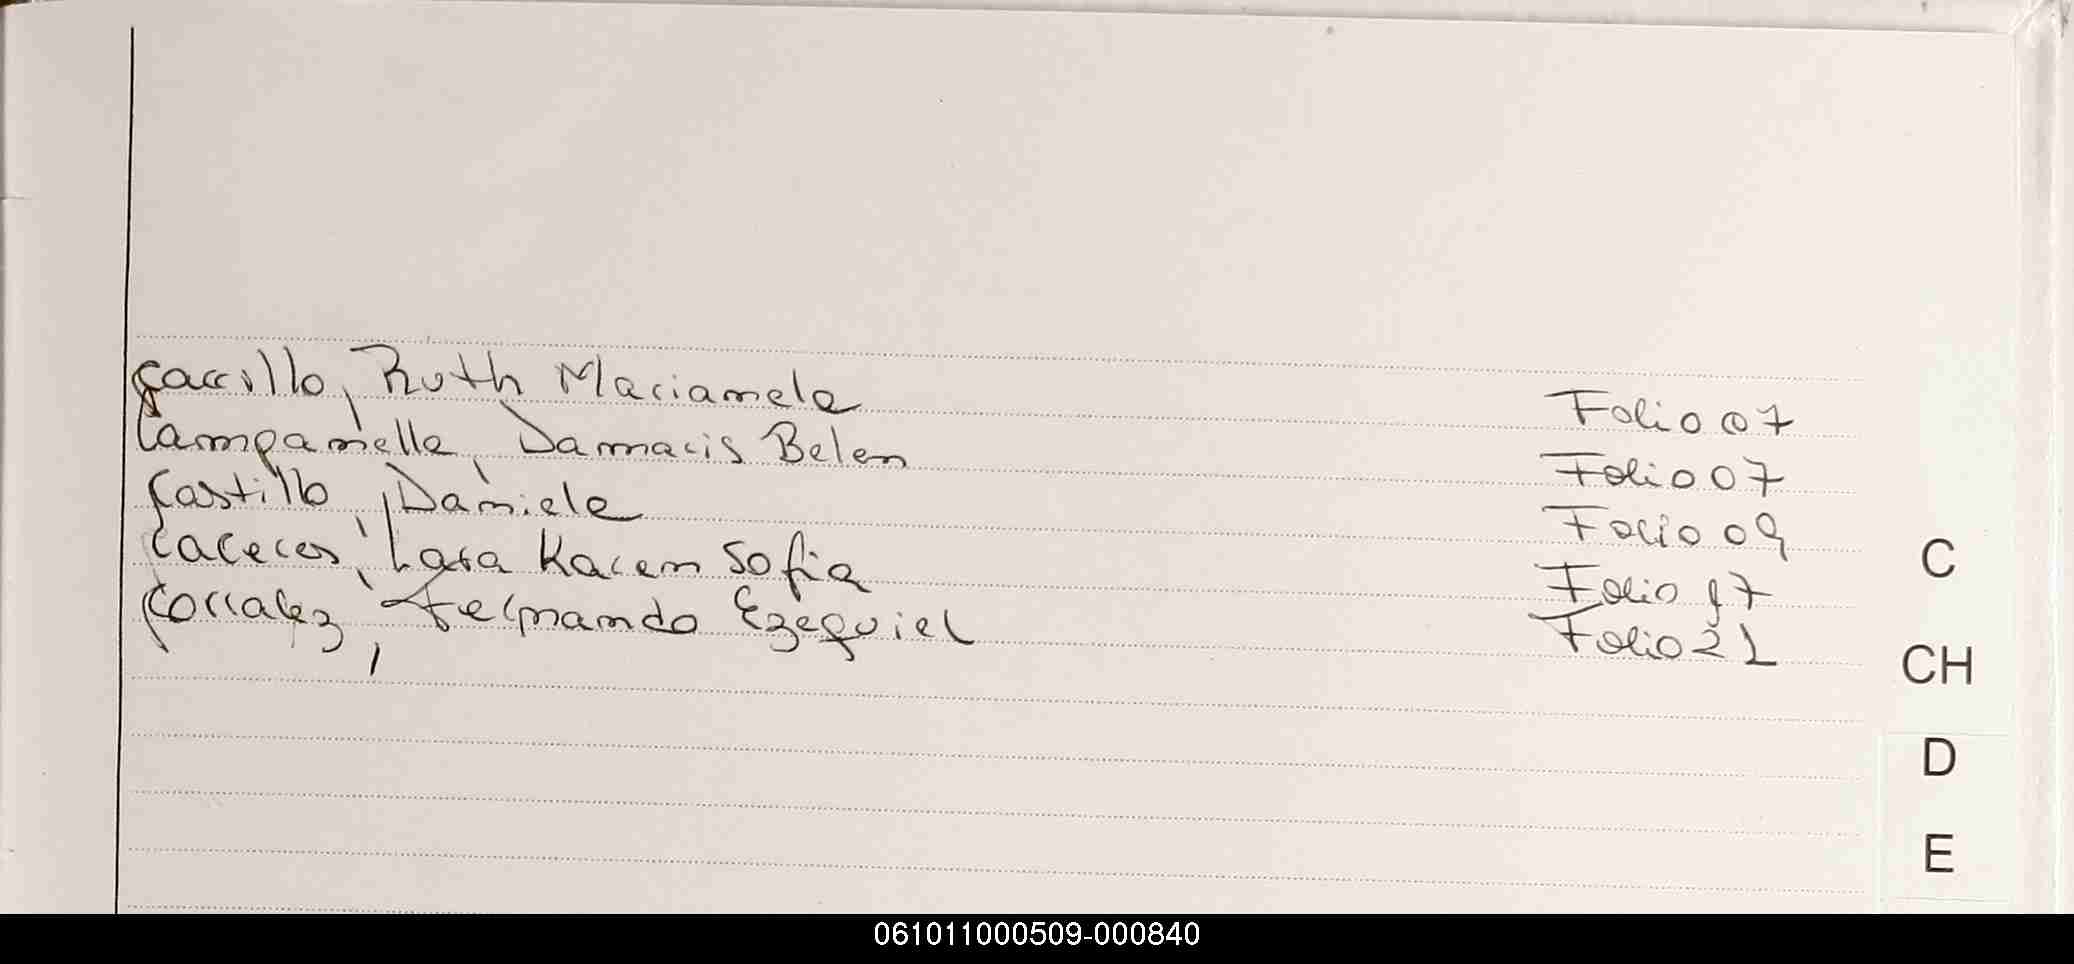 Carrillo, Ruth Marianela Folio 07
Campanella, Damaris Belen Folio 07
Castillo, Daniela Folio 09
Caceres, Lara Karen Sofia Folio 17
Corralez, Fernando Ezequiel Folio 21
C
CH
D
E
061011000509-000840